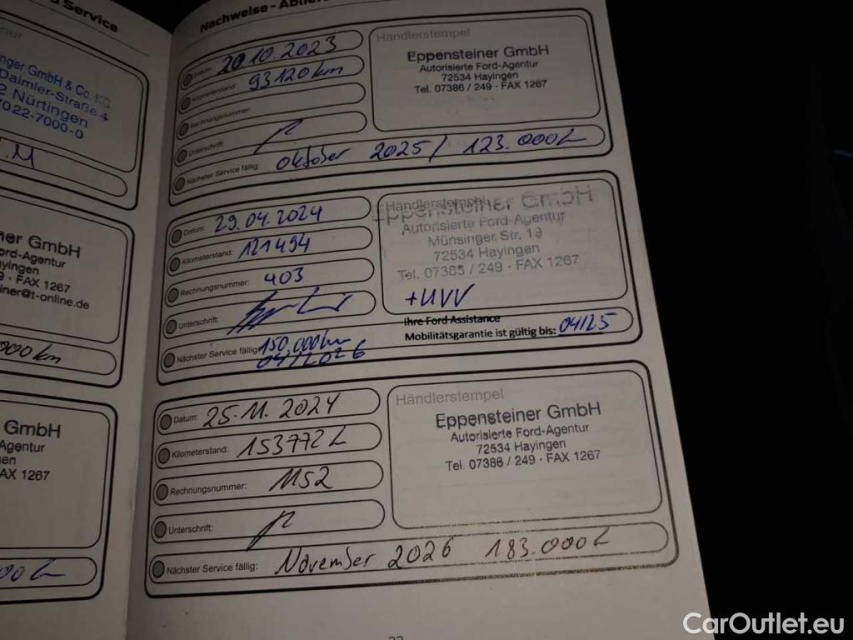 Service
Nachweise -
inger GmbH & Co.
Daimler-Straße 4
2 Nürtingen
7022-7000-0
ner GmbH
ord-Agentur
yingen
FAX 1267
iner@t-online.de
000 km
GmbH
Agentur
en
AX 1267
Datum: 20.10.2023
Kilometerstand: 93120 km
Rechnungsnummer:
Unterschrift:
Nächster Service fällig: Oktober 2025 / 123.000
Händlerstempel
Eppensteiner GmbH
Autorisierte Ford-Agentur
72534 Hayingen
Tel. 07386 / 249 · FAX 1267
Datum: 29.04.2024
Kilometerstand: 121494
Rechnungsnummer: 403
Unterschrift:
Nächster Service fällig: 150.000 km
04/2026
Händlerstempel
Eppensteiner GmbH
Autorisierte Ford-Agentur
Münsinger Str. 19
72534 Hayingen
Tel. 07386 / 249 · FAX 1267
+UVV
Ihre Ford Assistance
Mobilitätsgarantie ist gültig bis: 04/25
Datum: 25.11.2024
Kilometerstand: 153772
Rechnungsnummer: 1152
Unterschrift:
Nächster Service fällig: November 2026 183.000
Händlerstempel
Eppensteiner GmbH
Autorisierte Ford-Agentur
72534 Hayingen
Tel. 07386 / 249 · FAX 1267
CarOutlet.eu